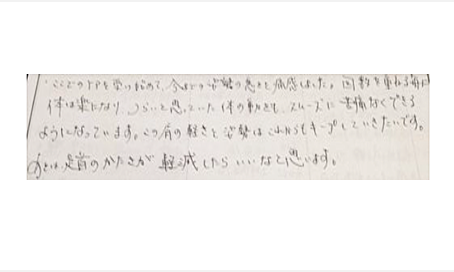 ・ここでのケアを受け始めて、今までの姿勢の悪さを痛感しました。回数を重ねる毎に
体は楽になり、つらいと思っていた体の動きも、スムーズに苦痛なくできる
ようになっています。この肩の軽さと姿勢はこれからもキープしていきたいです。
あとは、足首のかたさが軽減したらいいなと思います。